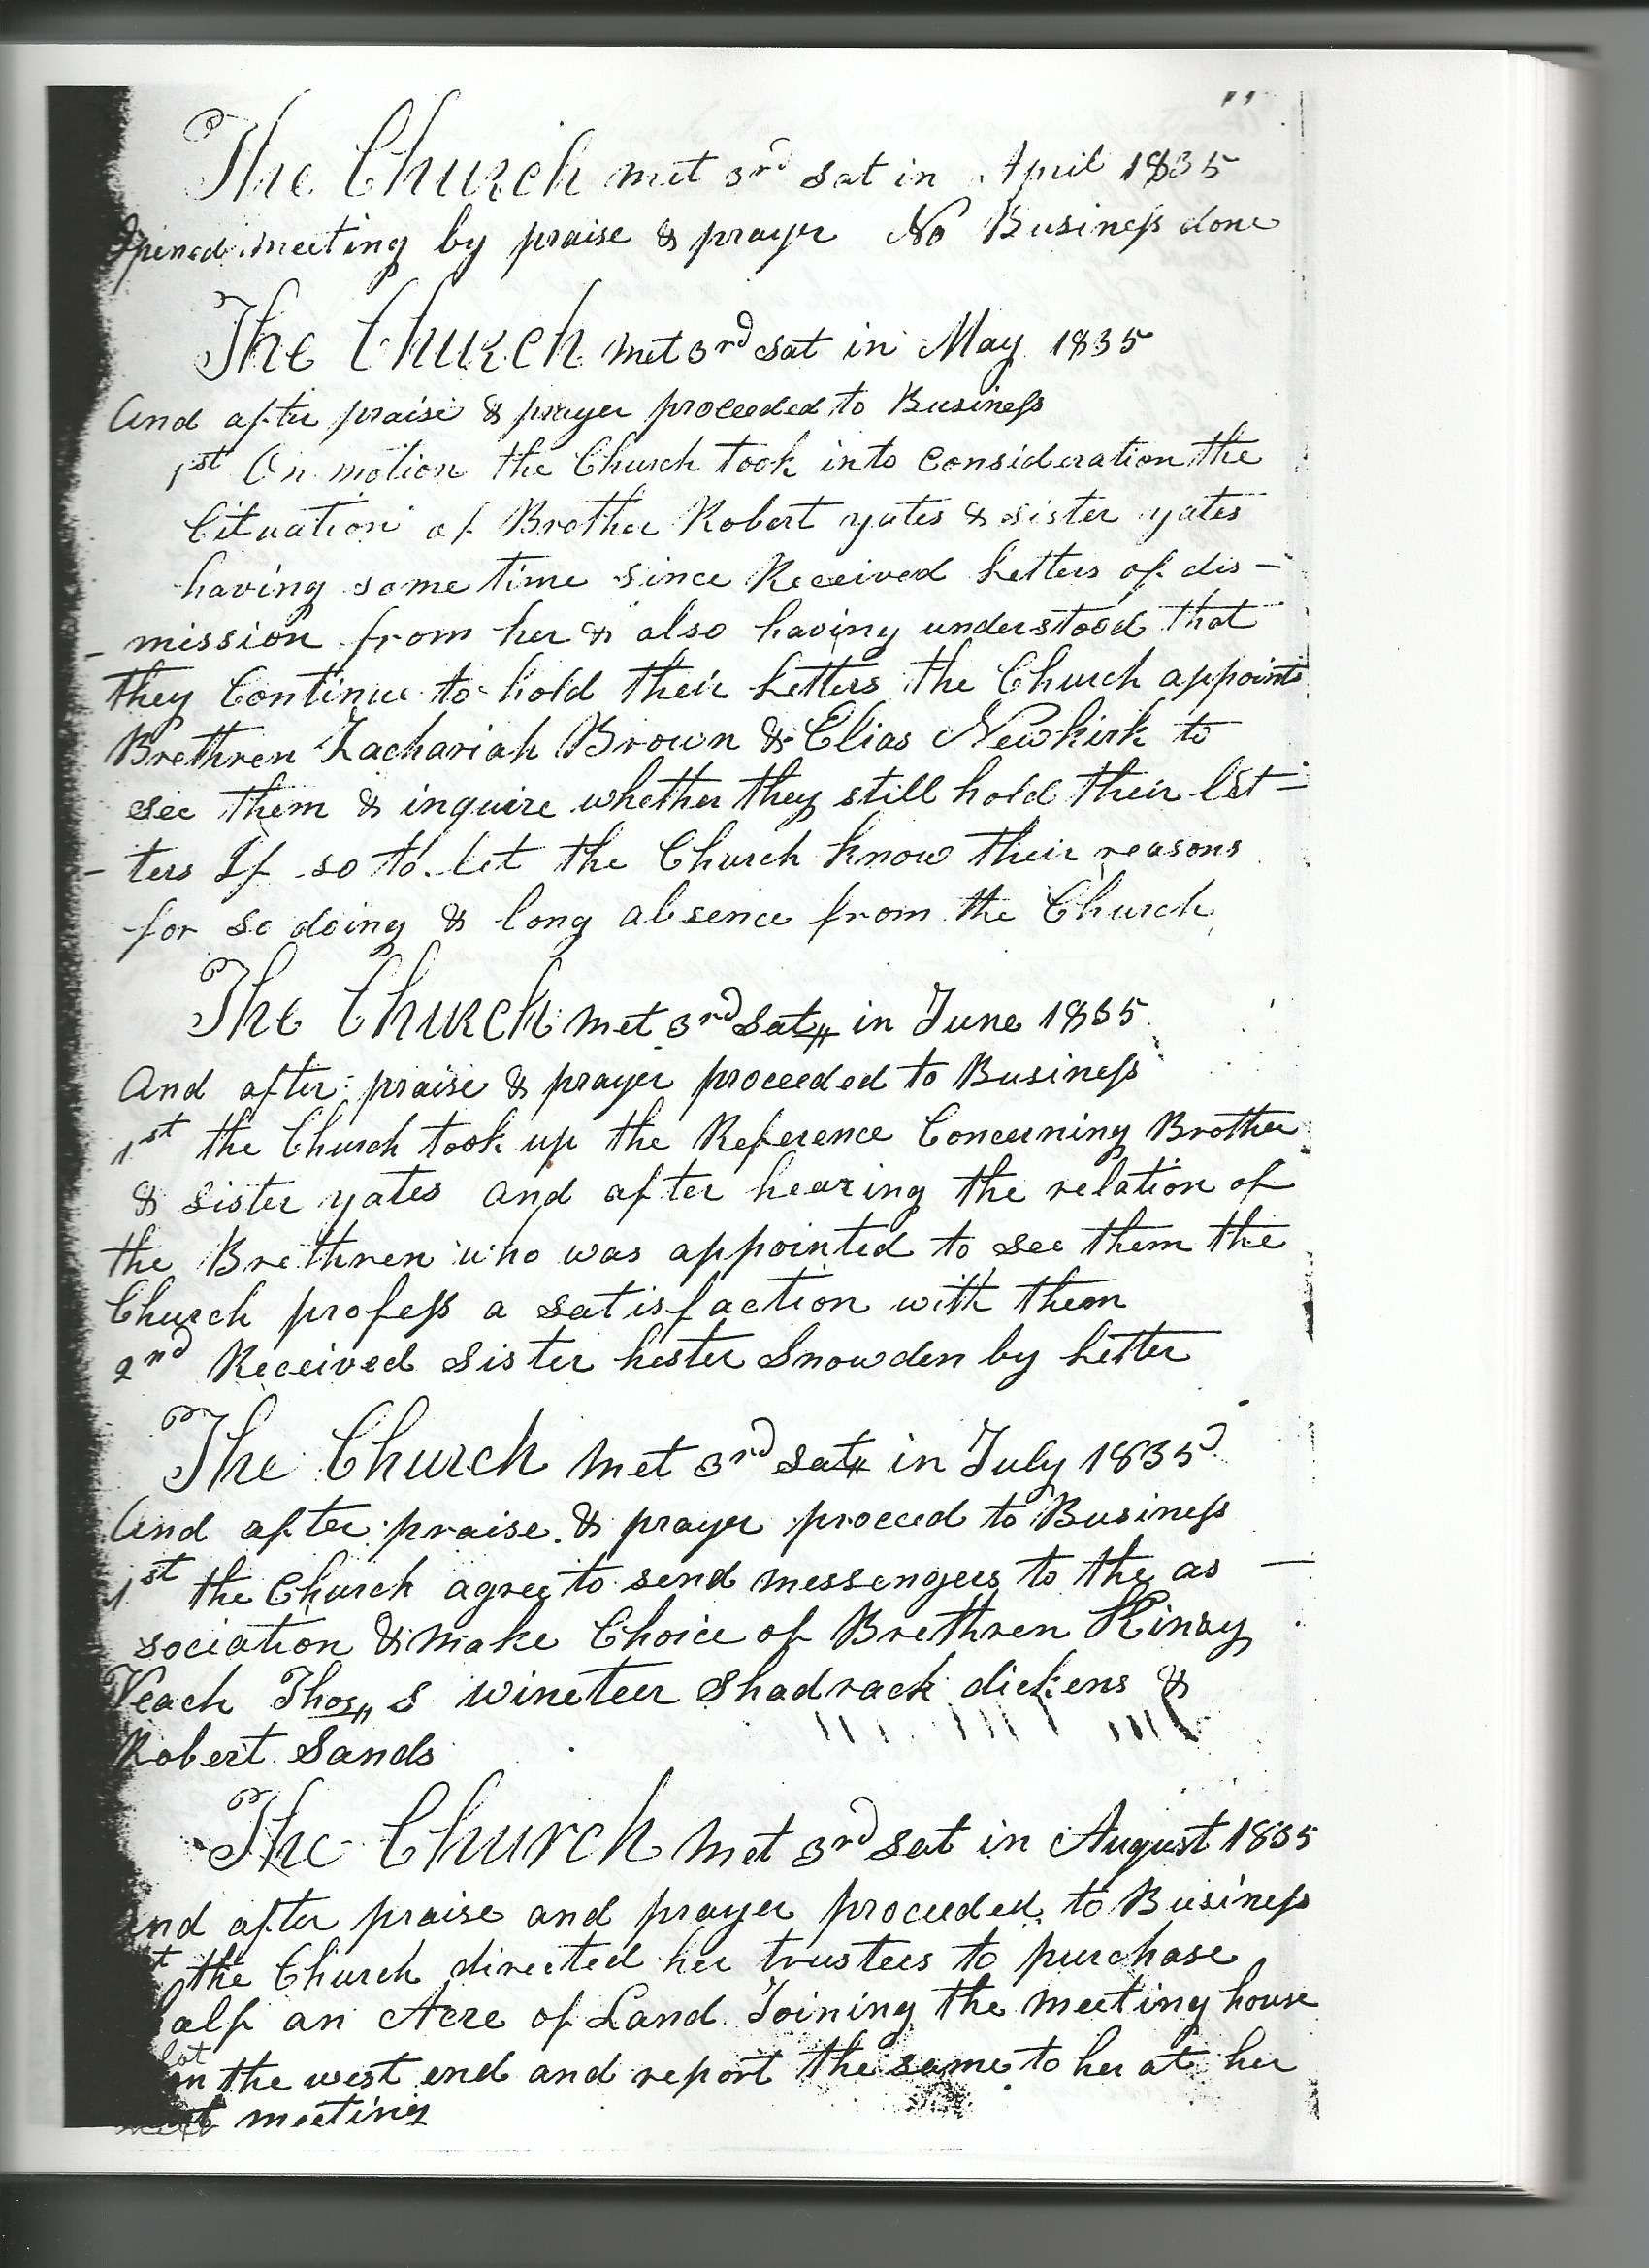 The Church met 3rd Sat in April 1835
Opened meeting by praise & prayer No Business done
The Church met 3rd Sat in May 1835
And after praise & prayer proceeded to Business
1st On motion the Church took into Consideration the
Cituation of Brother Robert yates & sister yates
having some time since Received Letters of dis-
-mission from her & also having understood that
they Continue to hold their Letters the Church appoints
Brethren Zachariah Brown & Elias Newkirk to
see them & inquire whether they still hold their let-
-ters If so to let the Church know their reasons
for so doing & long absence from the Church
The Church met 3rd Sat„ in June 1835
And after praise & prayer proceeded to Business
1st the Church took up the Reference Concerning Brother
& sister yates and after hearing the relation of
the Brethren who was appointed to see them the
Church profess a satisfaction with them
2nd Received Sister hester Snowden by Letter
The Church met 3rd Sat„ in July 1835
And after praise & prayer proceed to Business
1st the Church agree to send messengers to the as-
sociation & make Choice of Brethren Kinsy
Veach Thos„ S wineteer Shadrack dickens &
Robert Sands
The Church met 3rd Sat in August 1835
And after praise and prayer proceeded to Business
t the Church directed her trustees to purchase
alf an Acre of Land Joining the meeting house
lot
on the west end and report the same to her at her
next meeting